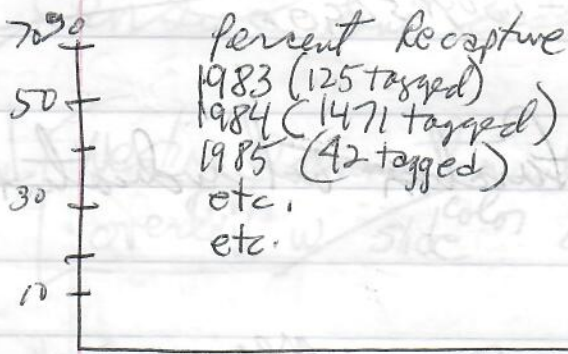 70% Percent Recapture
1983 (125 tagged)
50 1984 (1471 tagged)
1985 (42 tagged)
30 etc.
etc.
10